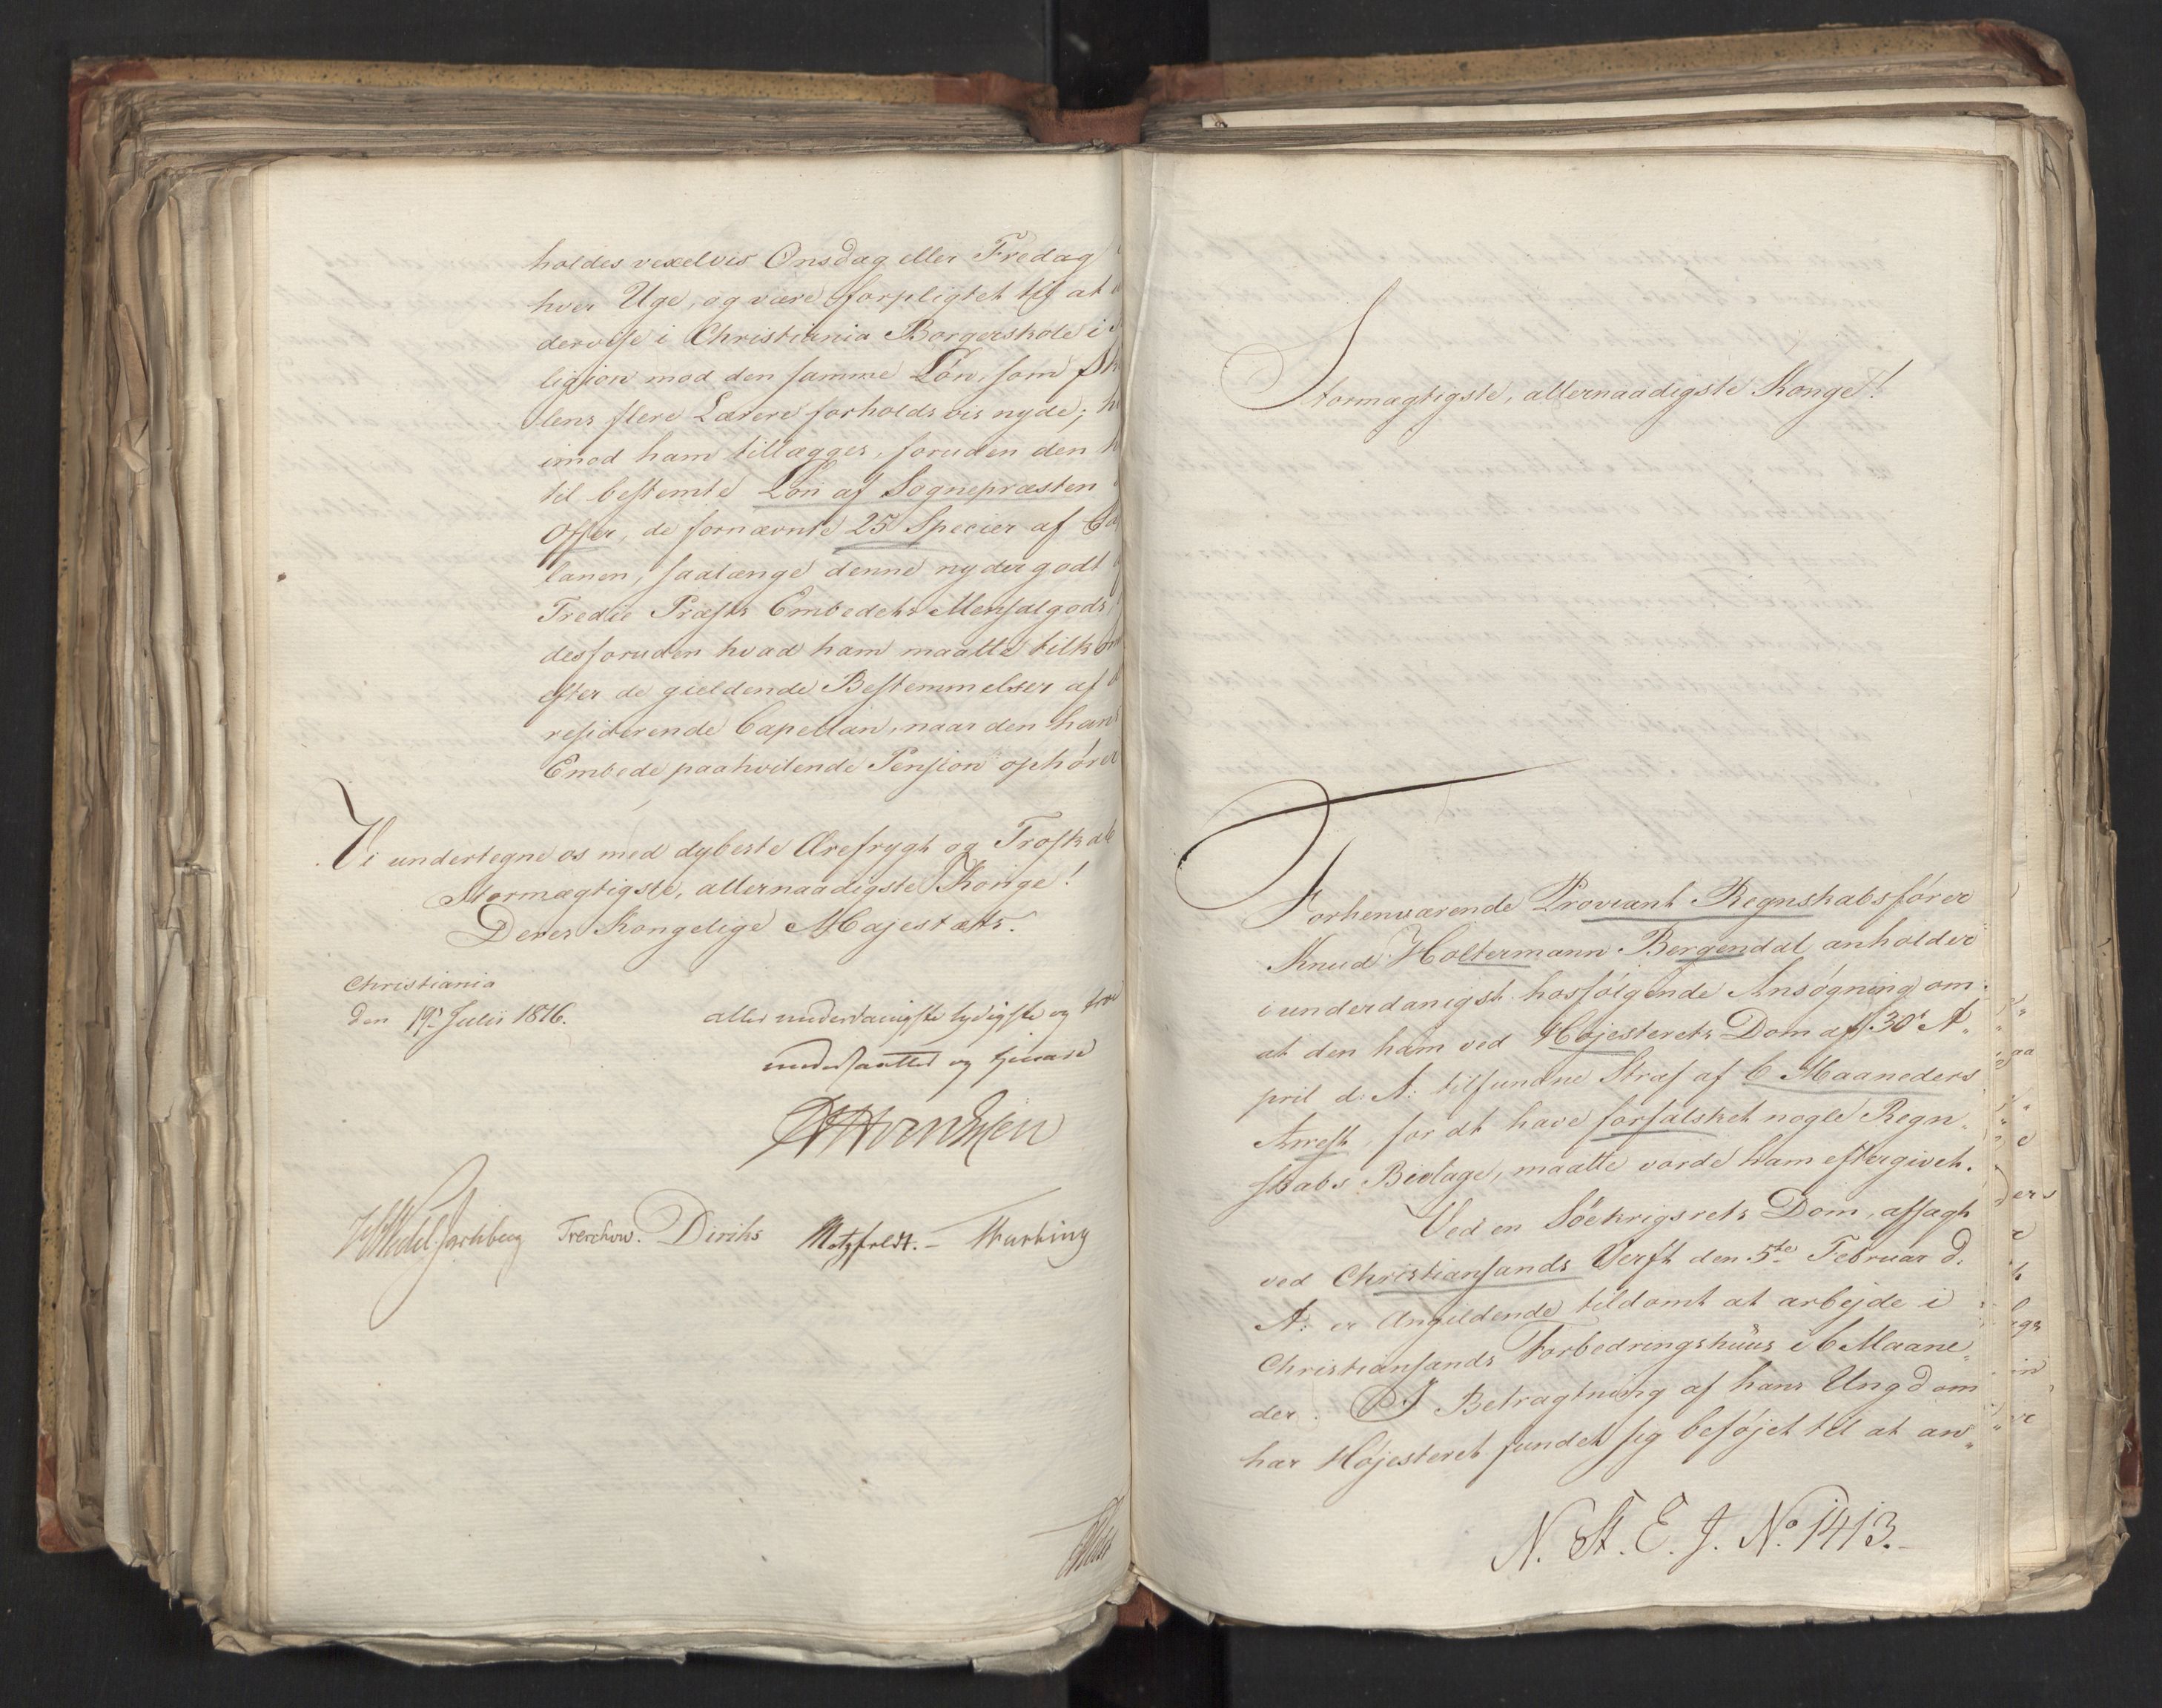 holdes vexelvis Onsdag eller Fredag
hver Uge, og være forpligtet til at
dervise i Christiania Borgerskole i
ligion mod den samme Lön, som Sko
lens flere Lærere forholdsvis nyde;
imod ham tillægges, foruden den
til bestemte Lön af Sognepræsten
Offer, de fornævnte 25 Specier af Ca
lanen, saalænge denne nyder godt
Tredie Præsts Embedets Mensalgods,
desforuden hvad ham maatte tilkom
efter de gieldende Bestemmelser af
residerende Capellan, naar den hans
Embede paahvilende Pension ophörer
Vi undertegne os med dybeste Ærefrygt og Troskab
Stormægtigste, allernaadigste Konge!
Deres Kongelige Majestæts.
Christiania
den 19de Julii 1816.
allerunderdanigste lydigste og troe
undersaatter og tjenere
Wedel Jarlsberg Treschow. Diriks Motzfeldt.
Stormægtigste, allernaadigste Konge!
Forhenværende Proviant Regnskabsförer
Knud Holtermann Bergendal anholder
i underdanigst hosfölgende Ansögning om
at den ham ved Höjesterets Dom af 30te A-
pril d: A: tilfundne Straf af 6 Maaneders
Arrest, for at have forfalsket nogle Regn-
skabs Bielage, maatte vorde ham eftergivet.
Ved en Söekrigsrets Dom, afsagt
ved Christiansands Verft den 5te Februar d.
A: er Angieldende tildömt at arbejde i
Christiansands Forbedringshuus i 6 Maane-
der. I Betragtning af hans Ungdom
har Höjesteret fundet sig beföjet til at an-
N. St. E. J. No 1413.